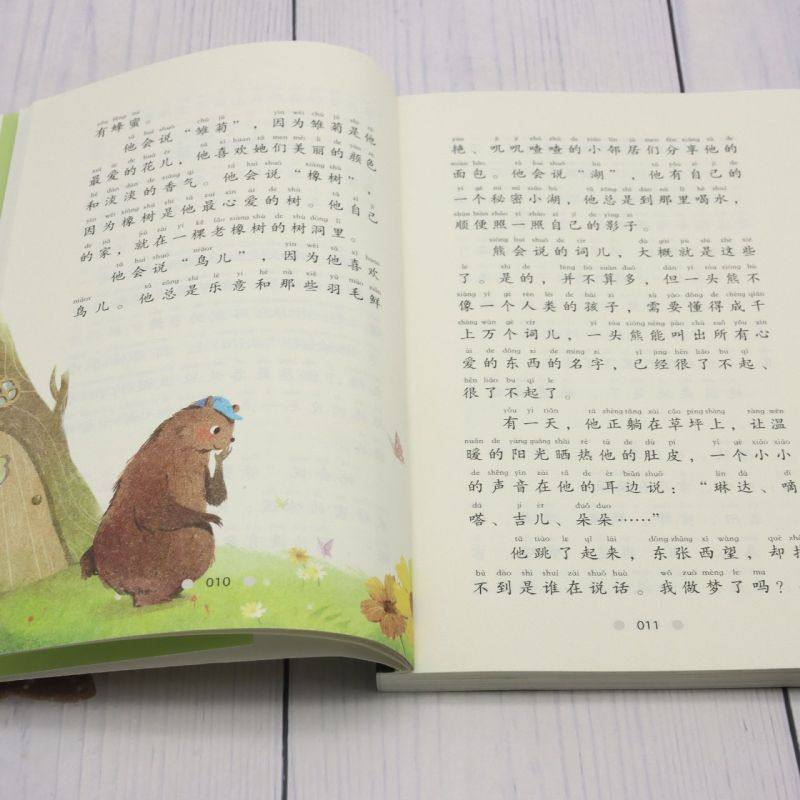 有蜂蜜。
他会说“雏菊”，因为雏菊是他
最爱的花儿，他喜欢她们美丽的颜色
和淡淡的香气。他会说“橡树”，
因为橡树是他最心爱的树。他自己
的家，就在一棵老橡树的树洞里。
他会说“鸟儿”，因为他喜欢
鸟儿。他总是乐意和那些羽毛鲜
010
艳、叽叽喳喳的小邻居们分享他的
面包。他会说“湖”，他有自己的
一个秘密小湖，他总是到那里喝水，
顺便照一照自己的影子。
熊会说的词儿，大概就是这些
了。是的，并不算多，但一头熊不
像一个人类的孩子，需要懂得成千
上万个词儿，一头熊能叫出所有心
爱的东西的名字，已经很了不起、
很了不起了。
有一天，他正躺在草坪上，让温
暖的阳光晒热他的肚皮，一个小小
的声音在他的耳边说：“琳达、嘀
嗒、吉儿、朵朵……”
他跳了起来，东张西望，却找
不到是谁在说话。我做梦了吗？
011